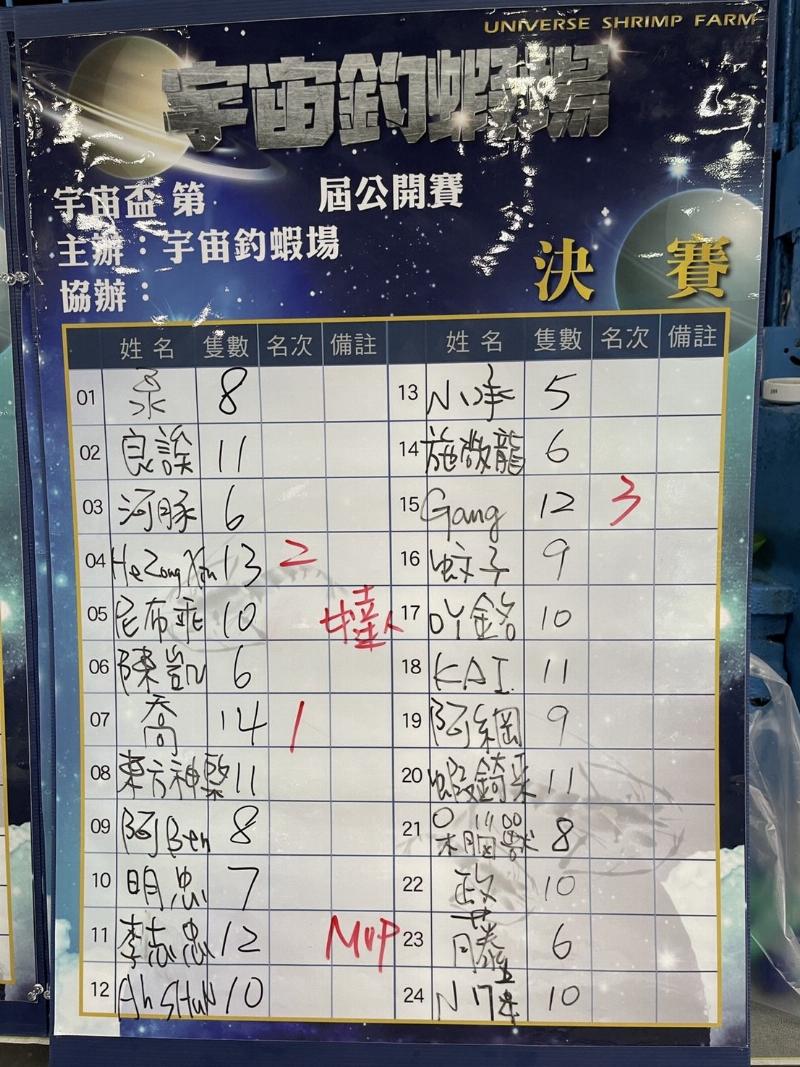 UNIVERSE SHRIMP FARM
宇宙釣蝦場
宇宙盃 第 屆公開賽
主辦：宇宙釣蝦場
協辦：
決賽
姓名 隻數 名次 備註 姓名 隻數 名次 備註
01 8
13 5
02 良 11
14 施 龍 6
03 河豚 6
15 Gang 12 3
04 13 2
16 蚊子 9
05 尼布 10
17 10
06 陳凱 6
18 KAI 11
07 喬 14 1
19 阿綱 9
08 東方神 11
20 11
09 阿Ben 8
21 8
10 明忠 7
22 政 10
11 李志忠 12 MVP
23 6
12 Ah 10
24 10